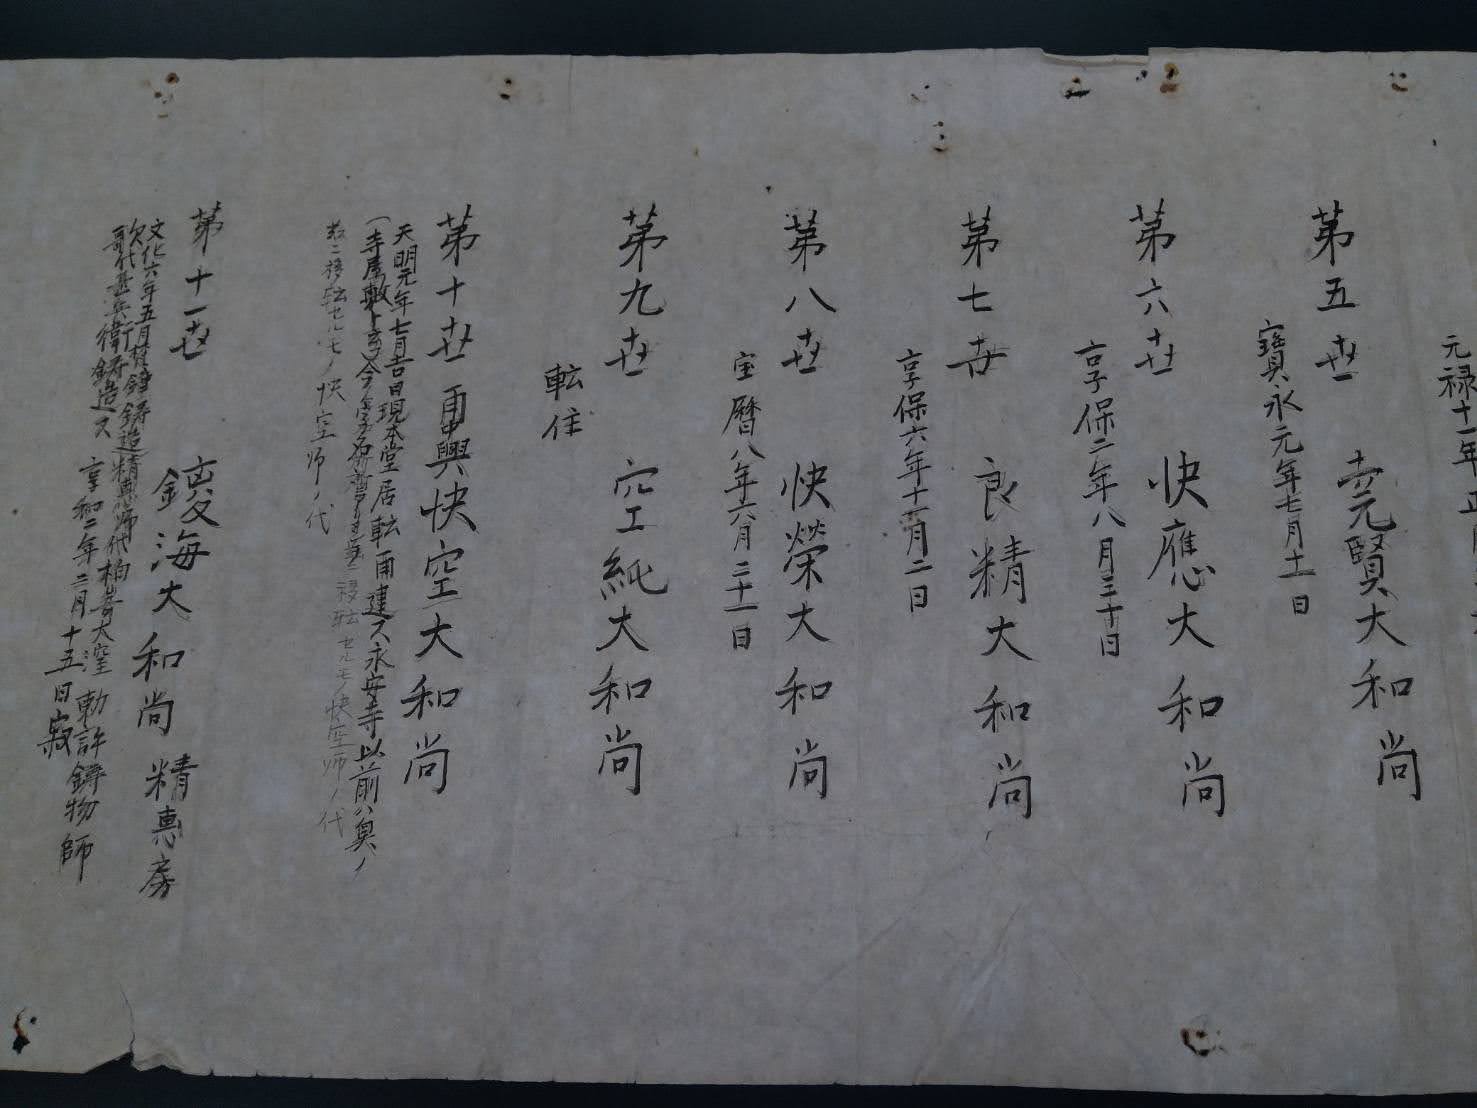 元禄十一年正
第五世 元賢大和尚
寶永元年七月十一日
第六世 快應大和尚
享保二年八月三十日
第七世 良精大和尚
享保六年十一月二日
第八世 快榮大和尚
宝暦八年六月二十一日
第九世 空純大和尚
転住
第十世 再興快空大和尚
天明元年七月吉日現本堂居転再建ス永安寺以前ハ奥ノ
（寺屋敷ト云今ノ
移転セルモノ快空師ノ代
移転セルモノ快空師ノ代
第十一世 鍐海大和尚 精惠房
文化六年五月梵鐘鋳造精惠師代柏崎大窪 勅許鋳物師
歌代甚兵衛鋳造ス 享和二年二月十五日寂